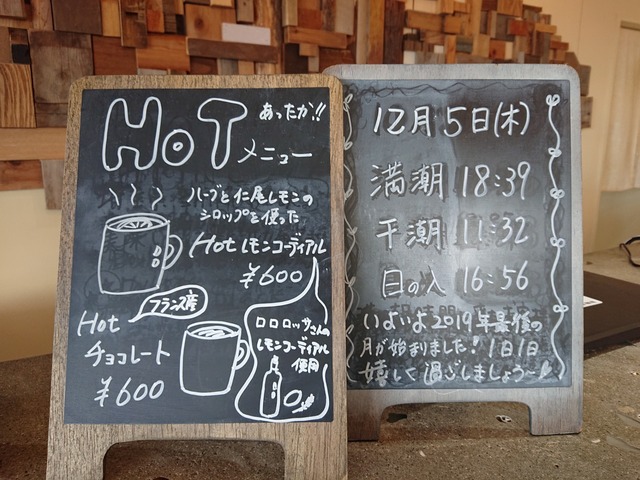 HOT
あったか!!
メニュー
ハーブと仁尾レモンの
シロップを使った
Hot レモンコーディアル
¥600
フランス産
Hot
チョコレート
¥600
ロロロッサさんの
レモンコーディアル
使用
12月5日(木)
満潮 18:39
干潮 11:32
日の入 16:56
いよいよ2019年最後の
月が始まりました! 1日1日
嬉しく過ごしましょう~